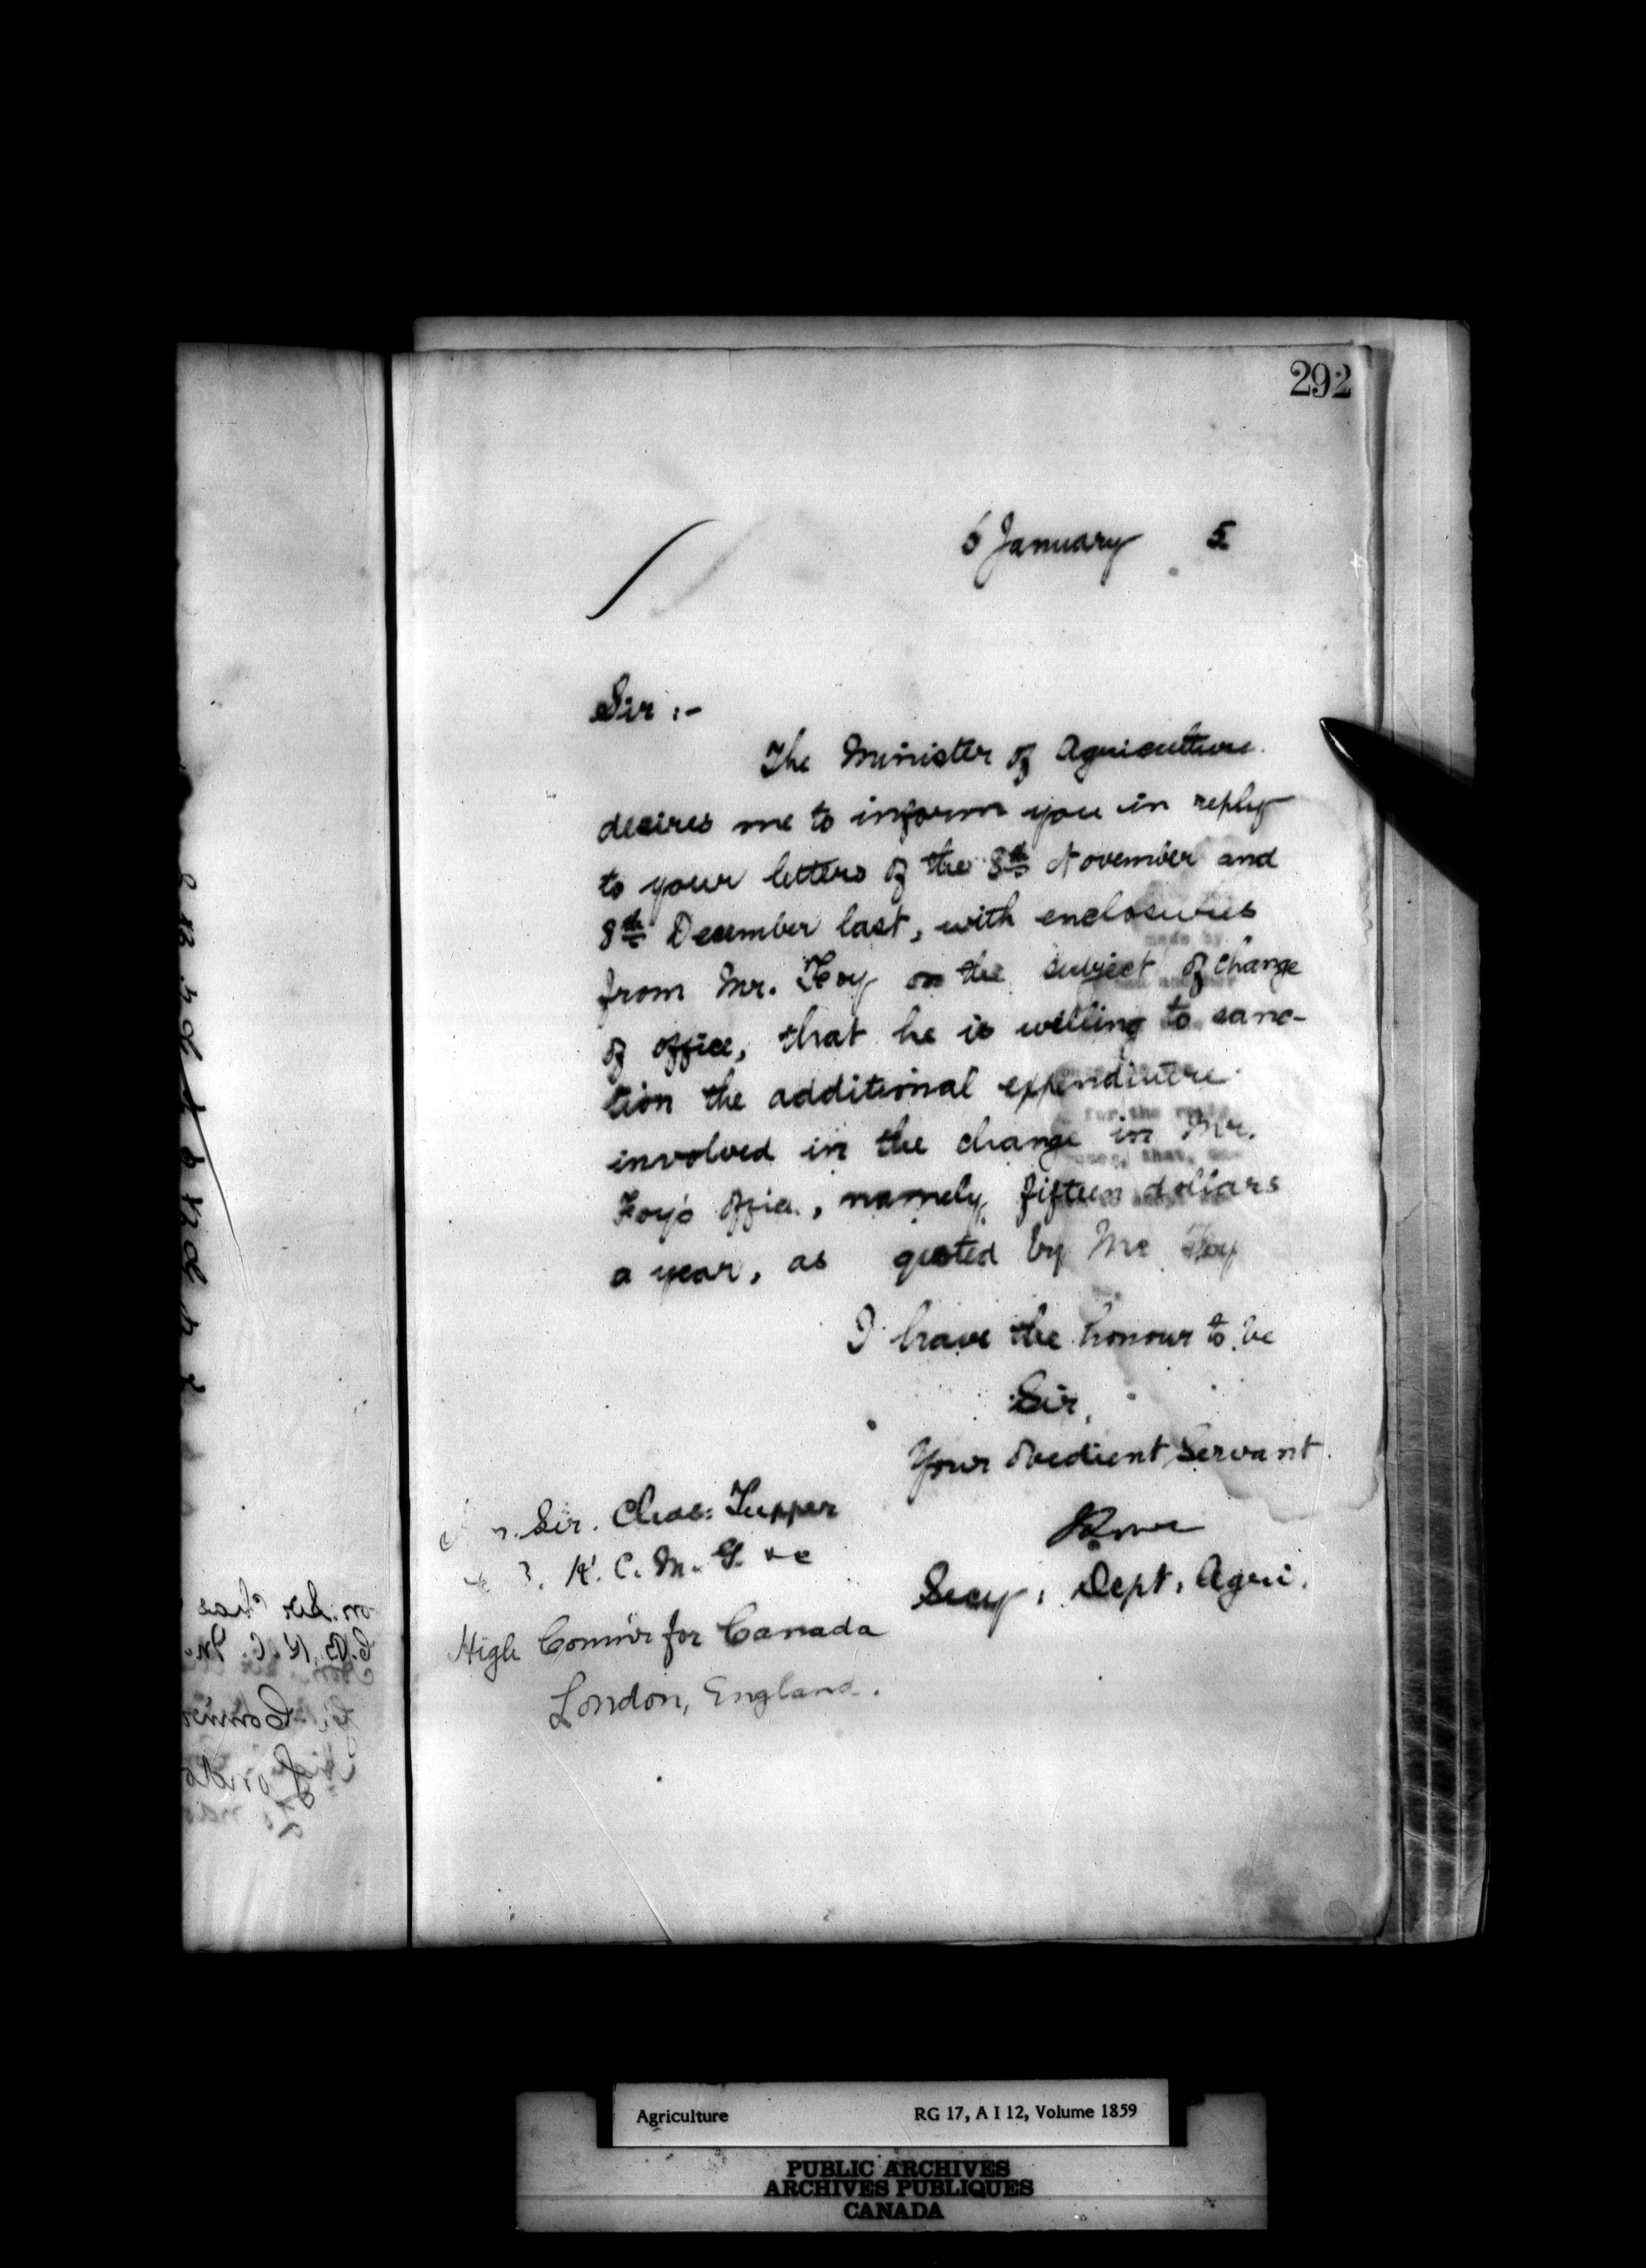 292
6 January 5
Sir :-
The Minister of Agriculture
desires me to inform you in reply
to your letters of the 8th November and
8th December last, with enclosures
from Mr. Foy on the subject of change
of office, that he is willing to sanc-
tion the additional expenditure
involved in the change in Mr.
Foy's office, namely, fifteen dollars
a year, as quoted by Mr Foy
I have the honour to be
Sir,
Your obedient Servant.
Secy, Dept, Agri.
Sir. Chas: Tupper
K. C. M. G. &c
High Commr for Canada
London, England.
Agriculture RG 17, A I 12, Volume 1859
PUBLIC ARCHIVES
ARCHIVES PUBLIQUES
CANADA